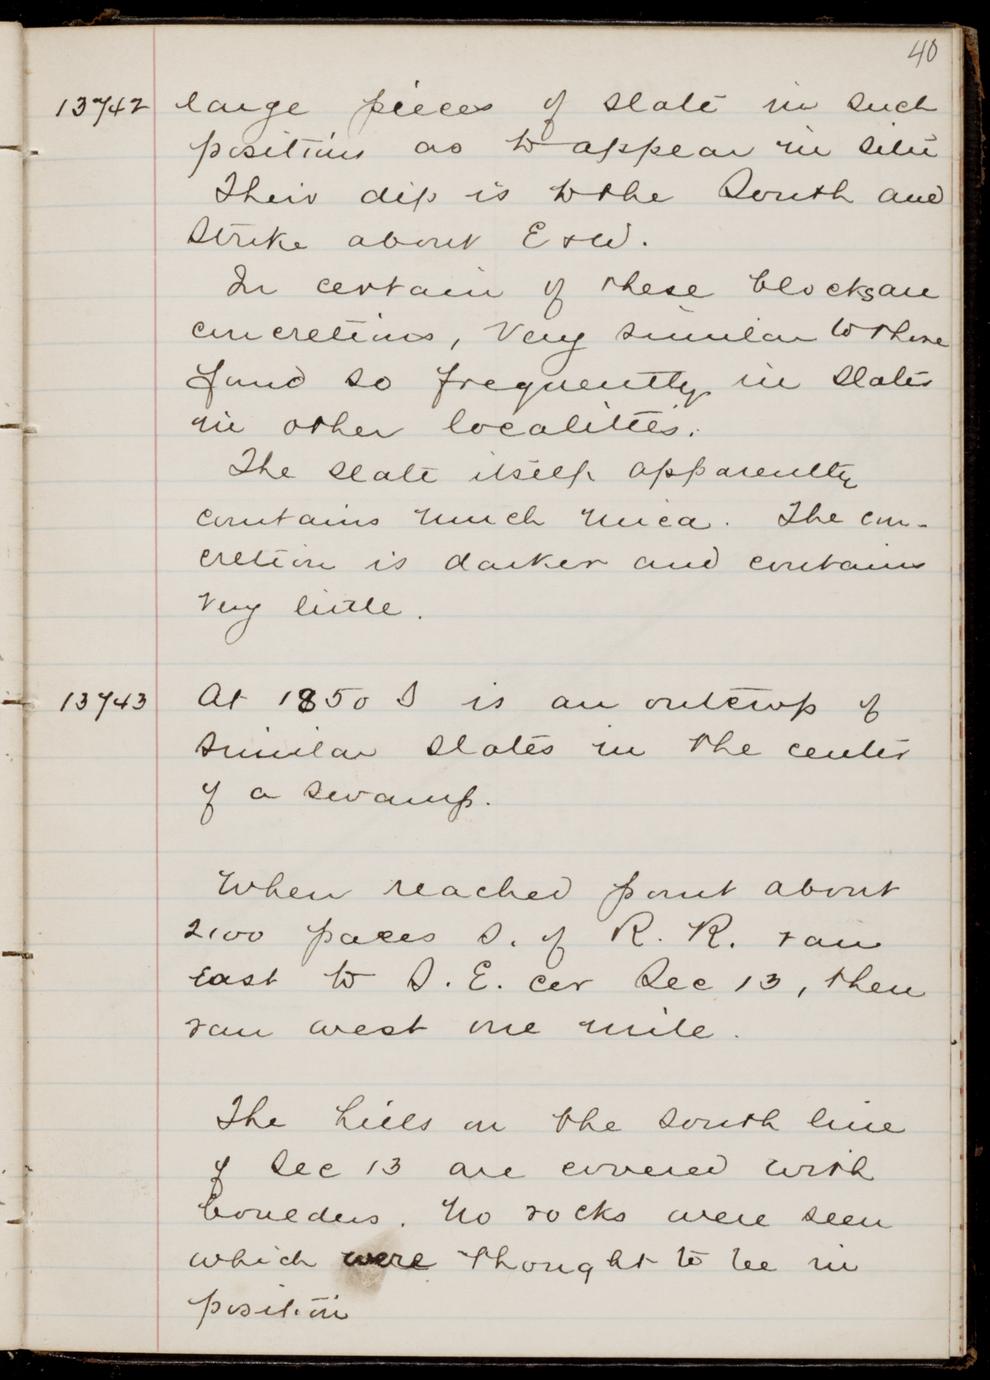 40
13742 large pieces of slate in such
position as to appear in situ
Their dip is to the South and
Strike about E & W.
In certain of these blocks are
concretions, very similar to those
found so frequently in slates
in other localities.
The slate itself apparently
contains much mica. The con-
cretion is darker and contains
very little.
13743 At 1850 S is an outcrop of
similar slates in the center
of a swamp.
When reached point about
2100 paces S. of R. R. ran
east to S. E. cor Sec 13, then
ran west one mile.
The hills on the south line
of Sec 13 are covered with
boulders. No rocks were seen
which were thought to be in
position